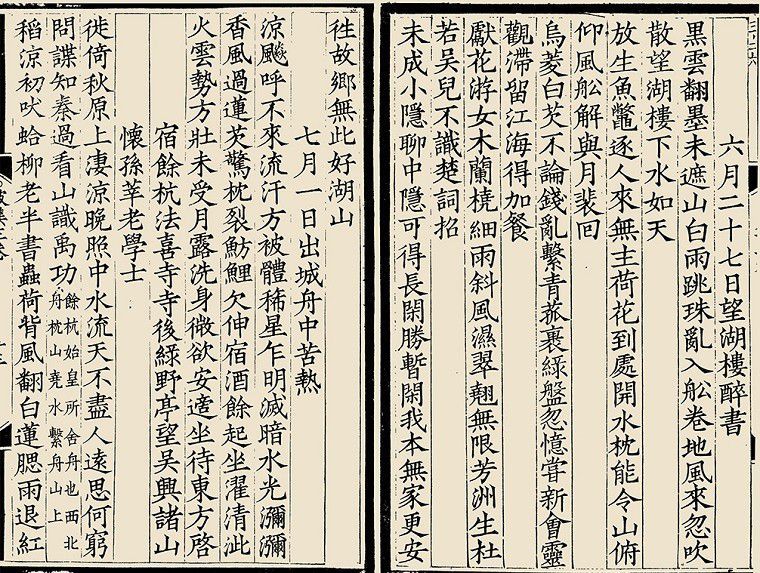 六月二十七日望湖樓醉書
黒雲翻墨未遮山白雨跳珠亂入舩卷地風來忽吹
散望湖樓下水如天
放生魚鼈逐人來無主荷花到處開水枕能令山俯
仰風舩解與月裴回
烏菱白芡不論錢亂繫青菰裹緑盤忽憶甞新會靈
觀滯留江海得加餐
獻花游女木蘭橈細雨斜風濕翠翹無限芳洲生杜
若吴兒不識楚詞招
未成小隱聊中隱可得長閑勝暫閑我本無家更安
徃故鄉無此好湖山
七月一日出城舟中苦熱
涼飈呼不來流汗方被體稀星乍明滅暗水光瀰瀰
香風過蓮芡驚枕裂魴鯉欠伸宿酒餘起坐濯清泚
火雲勢方壯未受月露洗身微欲安適坐待東方啓
宿餘杭法喜寺寺後緑野亭望吴興諸山
懷孫莘老學士
徙倚秋原上淒涼晚照中水流天不盡人遠思何窮
問諜知秦過看山識禹功餘杭始皇所舍舟也西北舟枕山堯水繫舟山上
稻涼初吠蛤柳老半書蟲荷背風翻白蓮腮雨退紅